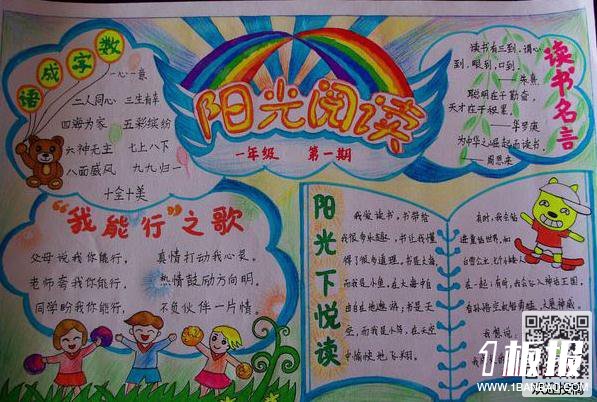 阳光阅读
一年级 第一期
数字成语
一心一意
二人同心 三生有幸
四海为家 五彩缤纷
六神无主 七上八下
八面威风 九九归一
十全十美
读书名言
读书有三到，谓心
到，眼到，口到。
——朱熹
聪明在于勤奋，
天才在于积累。
——华罗庚
为中华之崛起而读书。
——周恩来
“我能行”之歌
父母说我你能行， 真情打动我心灵。
老师夸我你能行， 热情鼓励方向明。
同学盼我你能行， 不负伙伴一片情。
阳光下悦读
我爱读书，书带给
我很多乐趣，书让我懂
得了很多道理。书是大海
而我是小鱼，在大海中自
由自在地遨游；书是天
空，而我是小鸟，在天空
中愉快地飞翔。
有时，我会钻
进童话世界，和
白雪公主、七个小矮人
在一起；有时，我会
我想说，
1板报
WWW.1BANBAO.COM